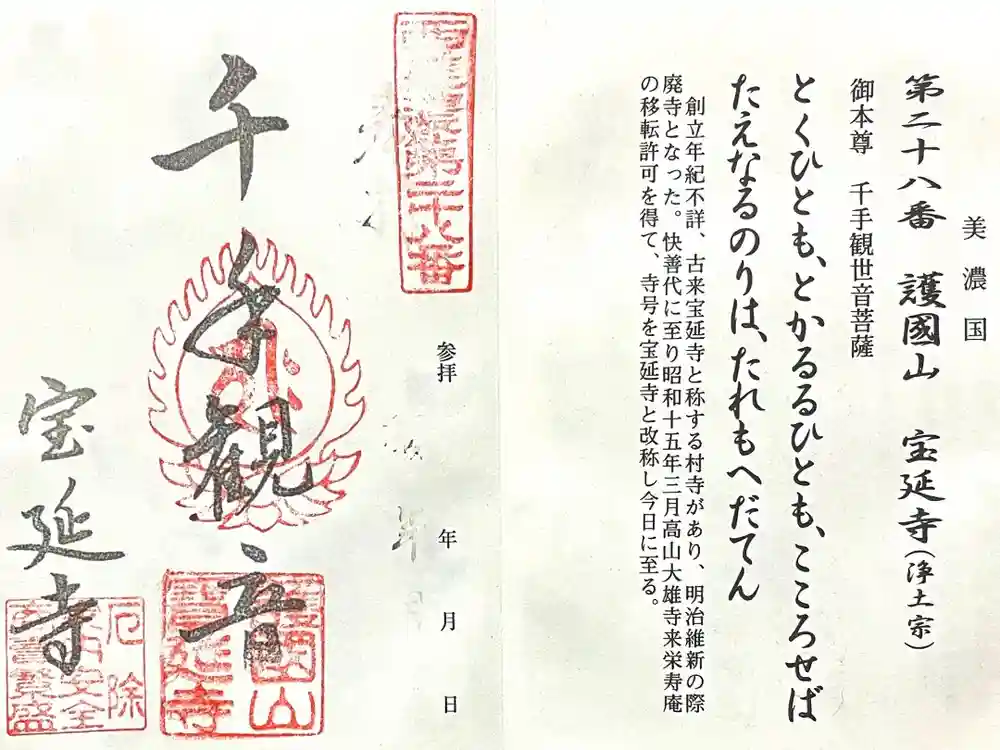 美濃国
第二十八番 護國山 宝延寺(浄土宗)
御本尊 千手観世音菩薩
とくひとも、とかるるひとも、こころせば
たえなるのりは、たれもへだてん
創立年紀不詳、古来宝延寺と称する村寺があり、明治維新の際
廃寺となった。快善代に至り昭和十五年三月高山大雄寺来栄寿庵
の移転許可を得て、寺号を宝延寺と改称し今日に至る。
参拝 年 月 日
第二十八番
千手観音
護國山
宝延寺
宝延寺
厄除
安全
繁盛